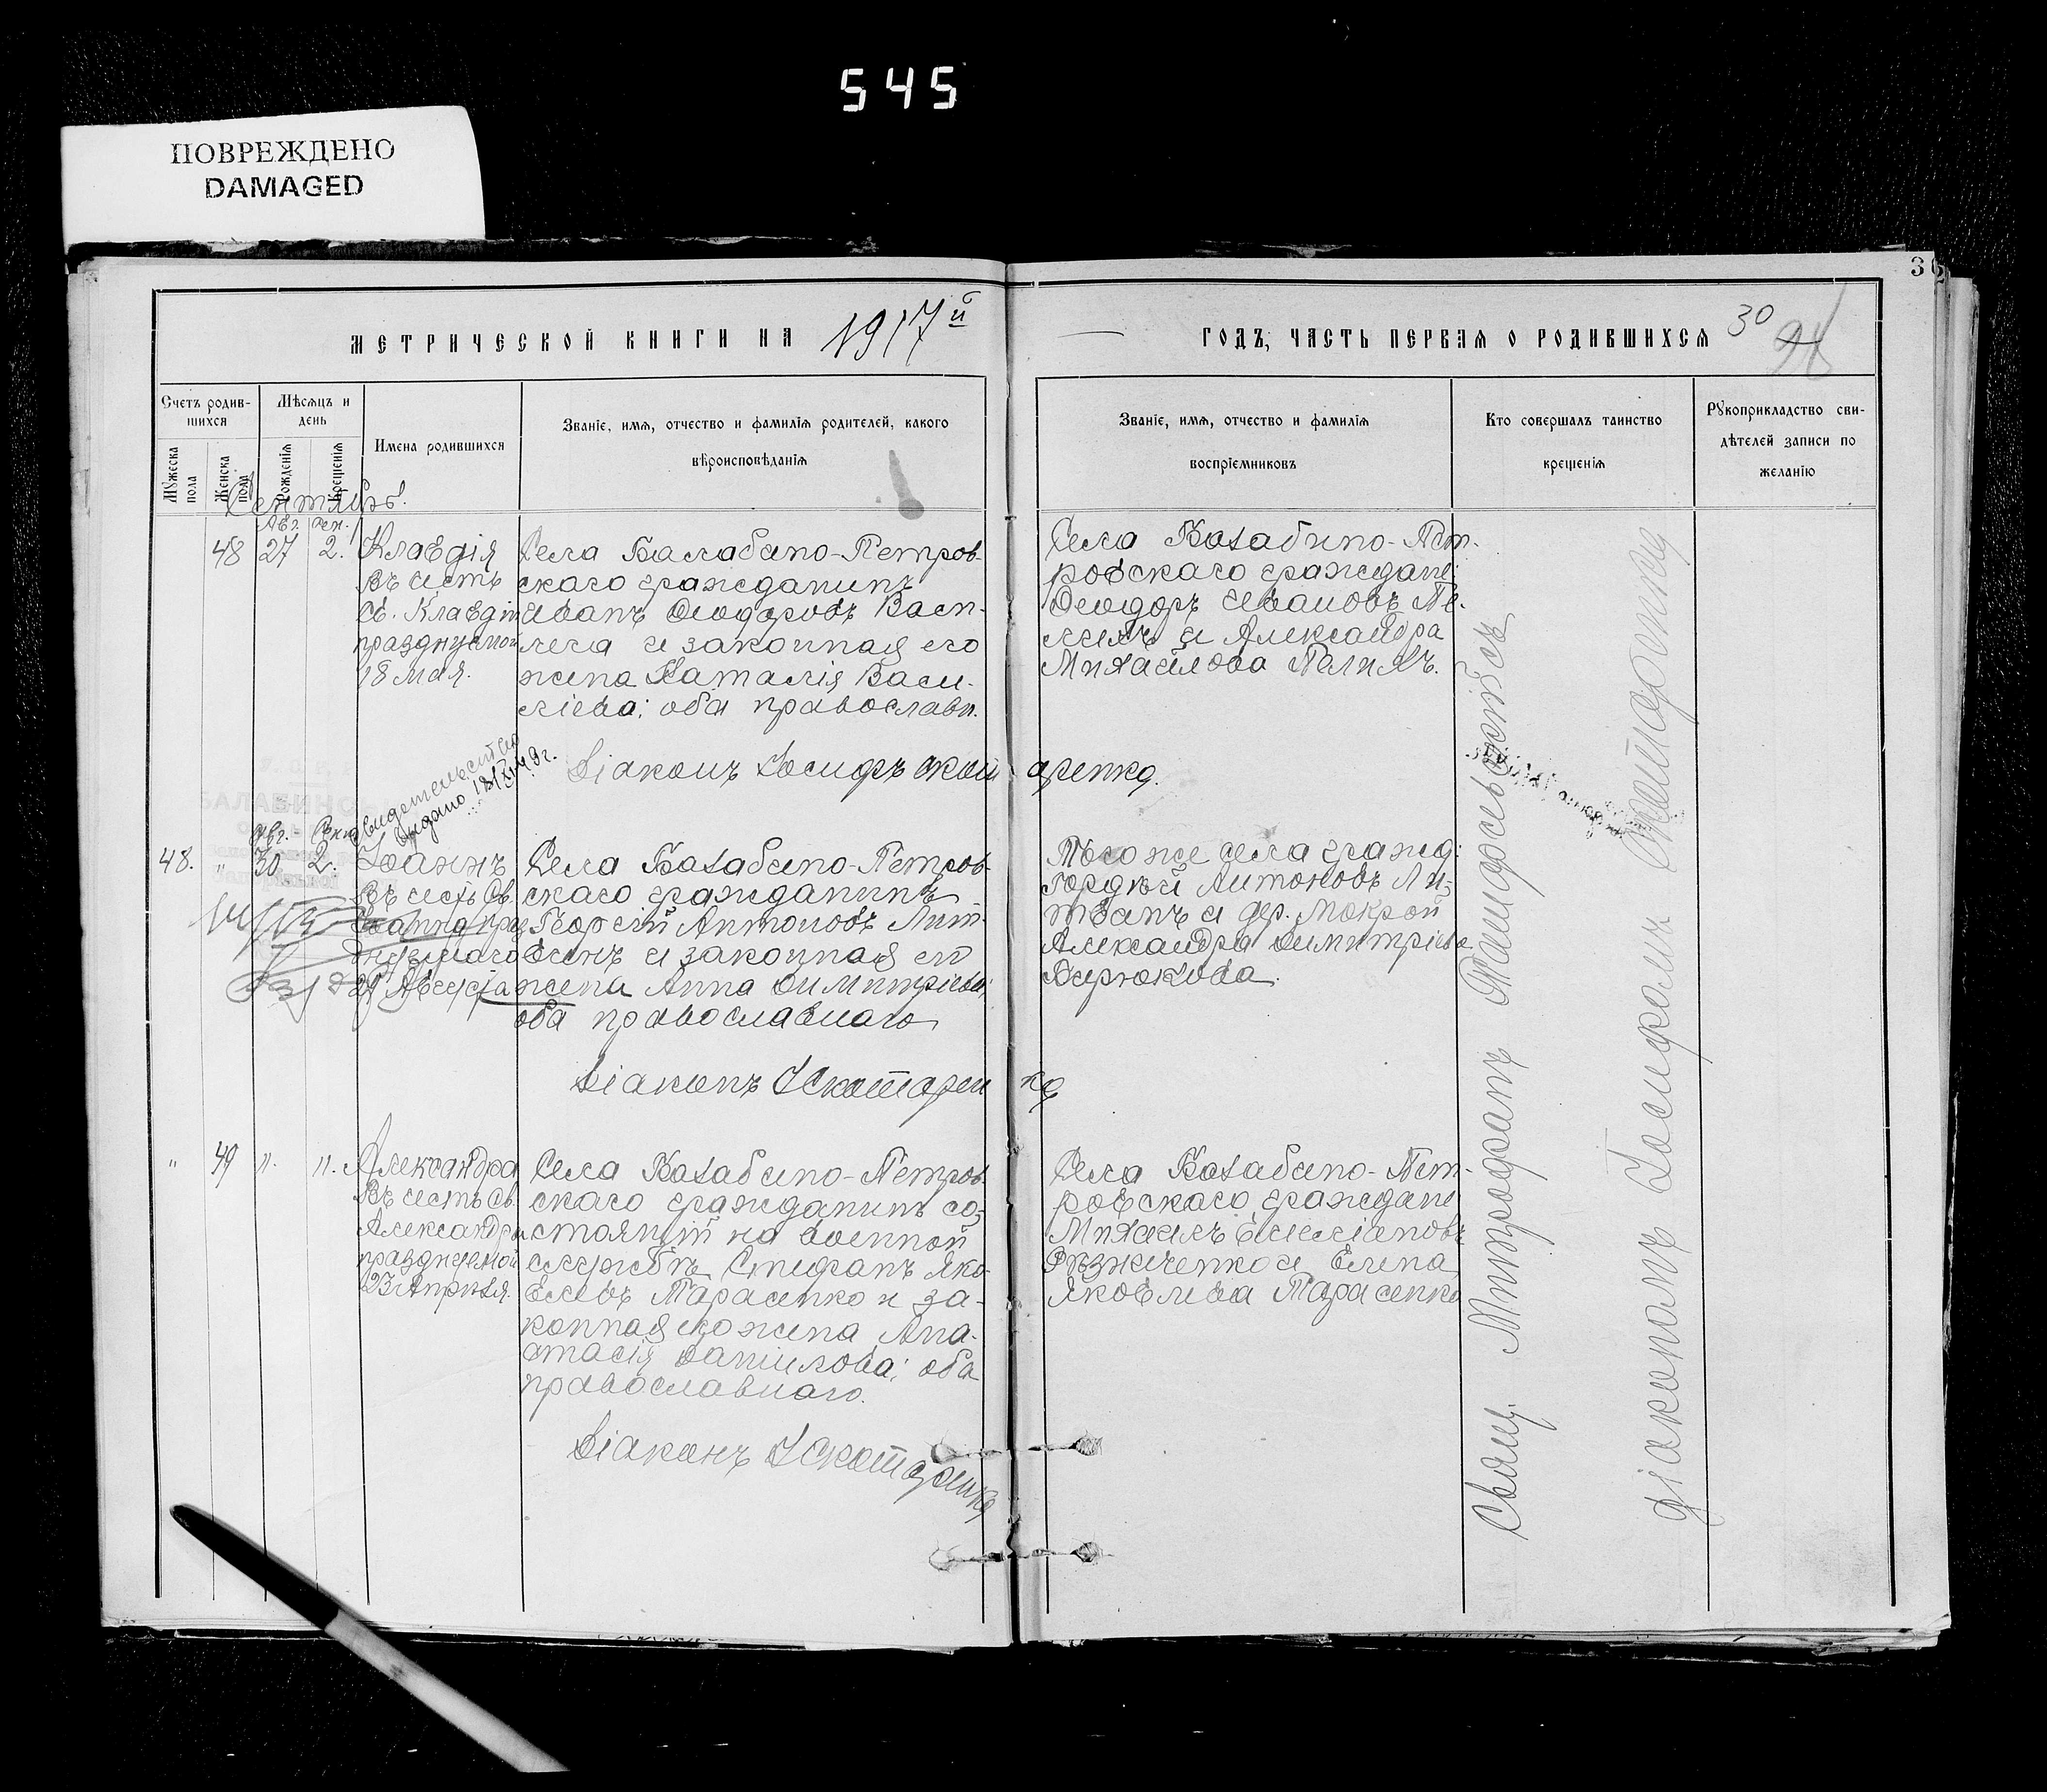 545
ПОВРЕЖДЕНО
DAMAGED
30
МЕТРИЧЕСКОЙ КНИГИ НА 1917й
ГОДЪ, ЧАСТЬ ПЕРВАЯ О РОДИВШИХСЯ
30
Счетъ родив-
шихся
Мужеска пола
Женска пола
Мѣсяцъ и
день
Рожденія
Крещенія
Имена родившихся
Званіе, имя, отчество и фамилія родителей, какого
вѣроисповѣданія
Званіе, имя, отчество и фамилія
воспріемниковъ
Кто совершалъ таинство
крещенія
Рукоприкладство сви-
дѣтелей записи по
желанію
Сентябрь.
Авг. Сен.
48 27 2.
Клавдія
въ честь
св. Клавдіи
празднуемой
18 мая.
Села Балабино-Петров-
скаго гражданинъ
Иванъ Ѳеодоровъ Васи-
лега и законная его
жена Наталія Васи-
ліева; оба православн.
Села Балабино-Пет-
ровскаго граждане:
Ѳеодоръ Ивановъ Пе-
и Александра
Михайлова
Діаконъ Іосифъ Скотаренко.
Свидетельство
выдано
Авг.
48. " 30 2.
Іоаннъ
въ честь Св.
Іоанна праз
днуемаго
29 Августа
Села Балабино-Петров-
скаго гражданинъ
Георгій Антоновъ Лит-
винъ и законная его
жена Анна Димитріева;
оба православнаго
Того же села гражд:
Гордѣй Антоновъ Ли-
твинъ и дер. Мокрой
Александра Димитріева
Бирюкова.
Діаконъ І Скотаренко
" 49 11. 11.
Александра
Въ честь Св.
Александры
празднуемой
23 Апрѣля.
Села Балабино-Петров-
скаго гражданинъ со-
стоящій на военной
службѣ Стефанъ Яко-
влевъ Тарасенко и за-
конная его жена Ана-
стасія Даніилова; оба
православнаго.
Села Балабино-Пет-
ровскаго граждане
Михаилъ Емиліановъ
Рѣзниченко и Елена
Яковлева Тарасенко
Діаконъ І Скотаренко
Свящ. Митрофанъ
діакономъ Іосифомъ Скотаренко